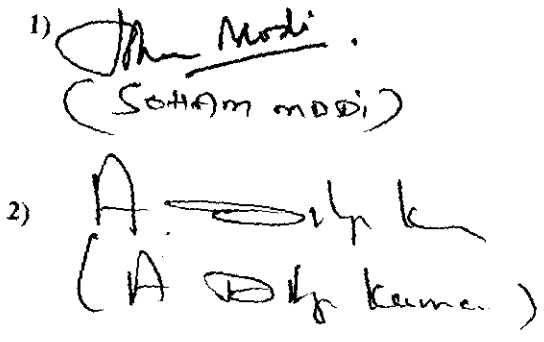 1) Soham Modi.
(SOHAM MODI)
2) A. Dilip Kum
(A Dilip Kumar)